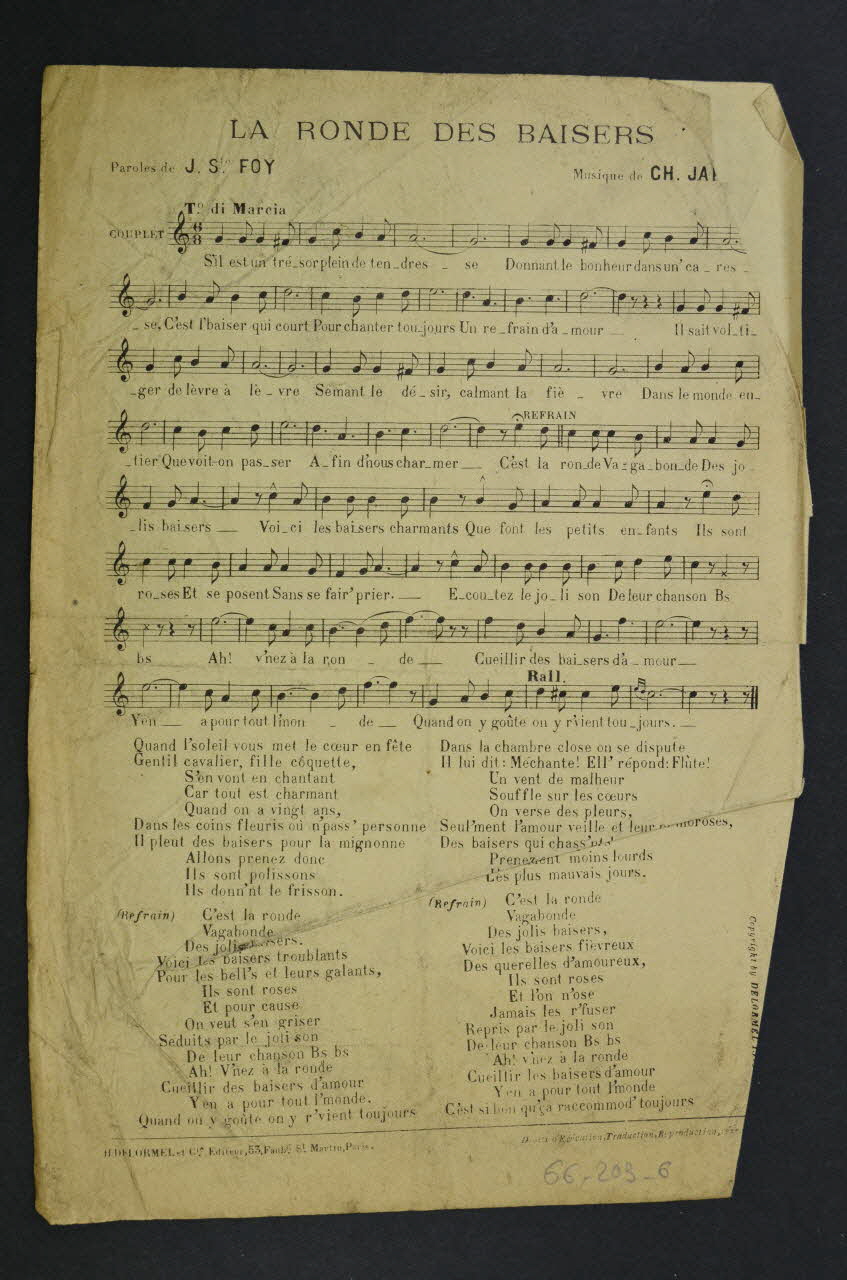 LA RONDE DES BAISERS
Paroles de J. Ste FOY
Musique de CH. JA
To di Marcia
COUPLET
S'il est un tré_sor plein de ten_dres _ se Donnant le bonheur dans un' ca _ res _
_ se, C'est l'baiser qui court Pour chanter tou_jours Un re_frain d'a_mour _ Il sait vol_ti_
_ger de lèvre à lè _ vre Semant le dé_sir, calmant la fiè _ vre Dans le monde en_
REFRAIN
_tier Que voit-on pas_ser A_fin d'nous char_mer _ C'est la ron_de Va_ga_bon_de Des jo_
_lis baisers _ Voi_ci les baisers charmants Que font les petits en_fants Ils sont
ro_ses Et se posent Sans se fair' prier. _ E_cou_tez le jo_li son De leur chanson Bs
bs Ah! v'nez à la ron _ de _ Cueillir des bai_sers d'a_mour _
Rall.
Y'en _ a pour tout l'mon _ de _ Quand on y goûte on y r'vient tou_jours. _
Quand l'soleil vous met le cœur en fête
Gentil cavalier, fille côquette,
S'en vont en chantant
Car tout est charmant
Quand on a vingt ans,
Dans les coins fleuris où n'pass' personne
Il pleut des baisers pour la mignonne
Allons prenez donc
Ils sont polissons
Ils donn'nt le frisson.
(Refrain) C'est la ronde
Vagabonde
Des jolis baisers.
Voici les baisers troublants
Pour les bell's et leurs galants,
Ils sont roses
Et pour cause
On veut s'en griser
Séduits par le joli son
De leur chanson Bs bs
Ah! V'nez à la ronde
Cueillir des baisers d'amour
Y'en a pour tout l'monde.
Quand on y goûte on y r'vient toujours
Dans la chambre close on se dispute
Il lui dit: Méchante! Ell' répond: Flûte!
Un vent de malheur
Souffle sur les cœurs
On verse des pleurs,
Seul'ment l'amour veille et leur
Des baisers qui
moins lourds
Les plus mauvais jours.
(Refrain) C'est la ronde
Vagabonde
Des jolis baisers,
Voici les baisers fiévreux
Des querelles d'amoureux,
Ils sont roses
Et l'on n'ose
Jamais les r'fuser
Repris par le joli son
De leur chanson Bs bs
Ah! v'nez à la ronde
Cueillir les baisers d'amour
Y'en a pour tout l'monde
C'est si bon qu'ça raccommod' toujours
Copyright by DELORMEL
H. DELORMEL et Cie Editeur, 53, Faubg St Martin, Paris.
Droits d'Exécution, Traduction, Reproduction,
66-209-6